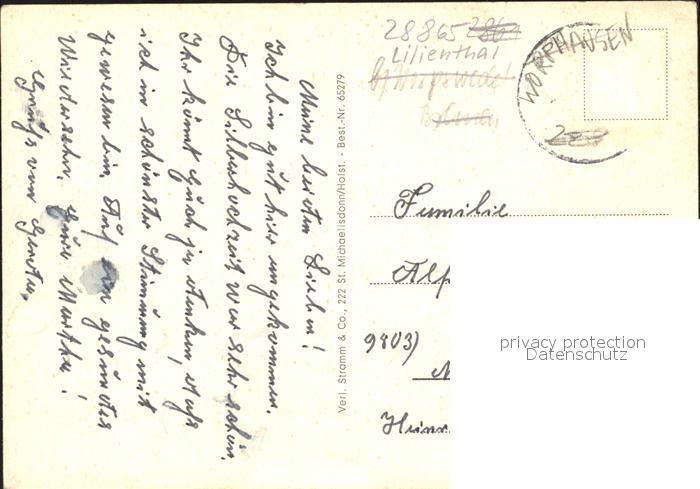 Meine beiden Lieben!
Ich bin gut hier angekommen.
Die Silberhochzeit war sehr schön.
Ihr könnt Euch ja denken, daß
ich in schönster Stimmung mit
gewesen bin. Auf ein gesundes
Wiedersehn. Eure Martha!
Grüße von
Verl. Stramm & Co., 222 St. Michaelisdonn/Holst. - Best.-Nr. 65279
28865
Lilienthal
b/Worpswede
WORPHAUSEN
Familie
Alf
9803)
Heinr
privacy protection
Datenschutz